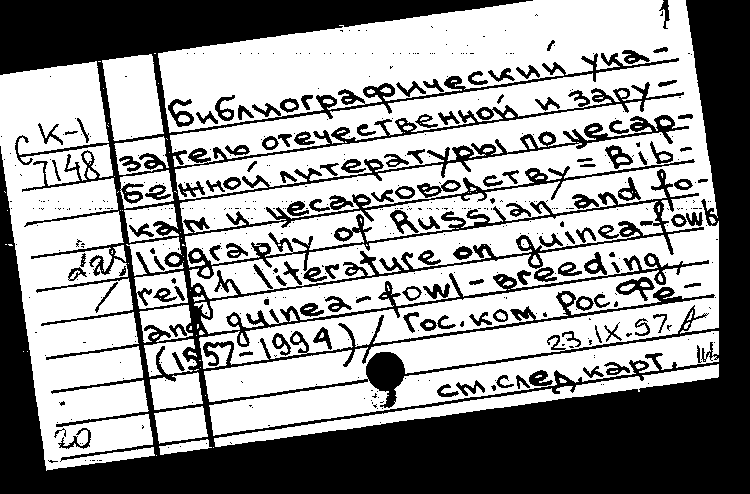 1
Библиографический ука-
СК-1
затель отечественной и зару-
7148
бежной литературы по цесар-
кам и цесарководству = Bib-
liography of Russian and fo-
reign literature on guinea-fowls
and guinea-fowl-breeding,
(1557-1994) / Гос. ком. Рос. Фе-
23.IX.97.
см. след. карт.
20